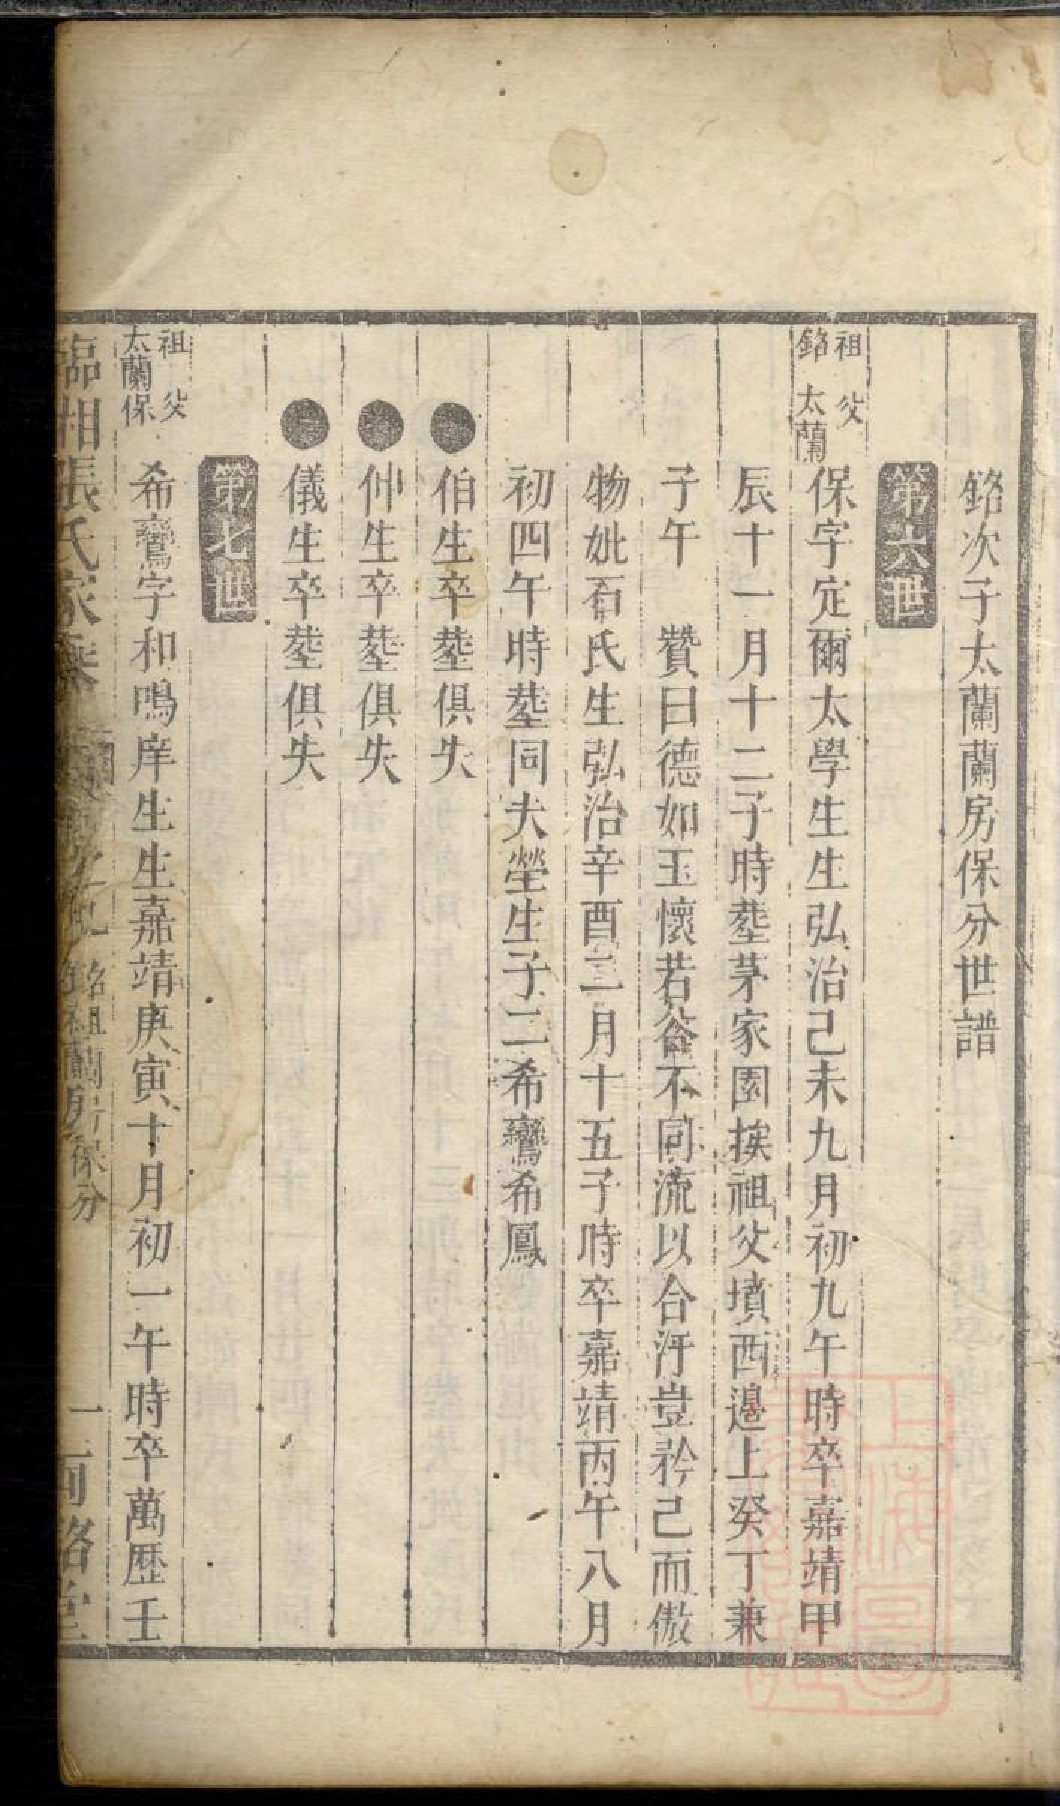 銘次子太蘭蘭房保分世譜
第六世
祖 父
銘 太蘭
保字定爾太學生生弘治己未九月初九午時卒嘉靖甲
辰十一月十二子時塟茅家園挨祖父墳西邉上癸丁兼
子午 贊曰德如玉懷若谷不同流以合汙豈矜己而傲
物妣石氏生弘治辛酉二月十五子時卒嘉靖丙午八月
初四午時塟同夫塋生子二希鸞希鳳
伯生卒塟俱失
仲生卒塟俱失
儀生卒塟俱失
第七世
祖 父
太蘭保
希鸞字和鳴庠生生嘉靖庚寅十月初一午時卒萬歴壬
臨湘張氏家乗 銘祖蘭房保分